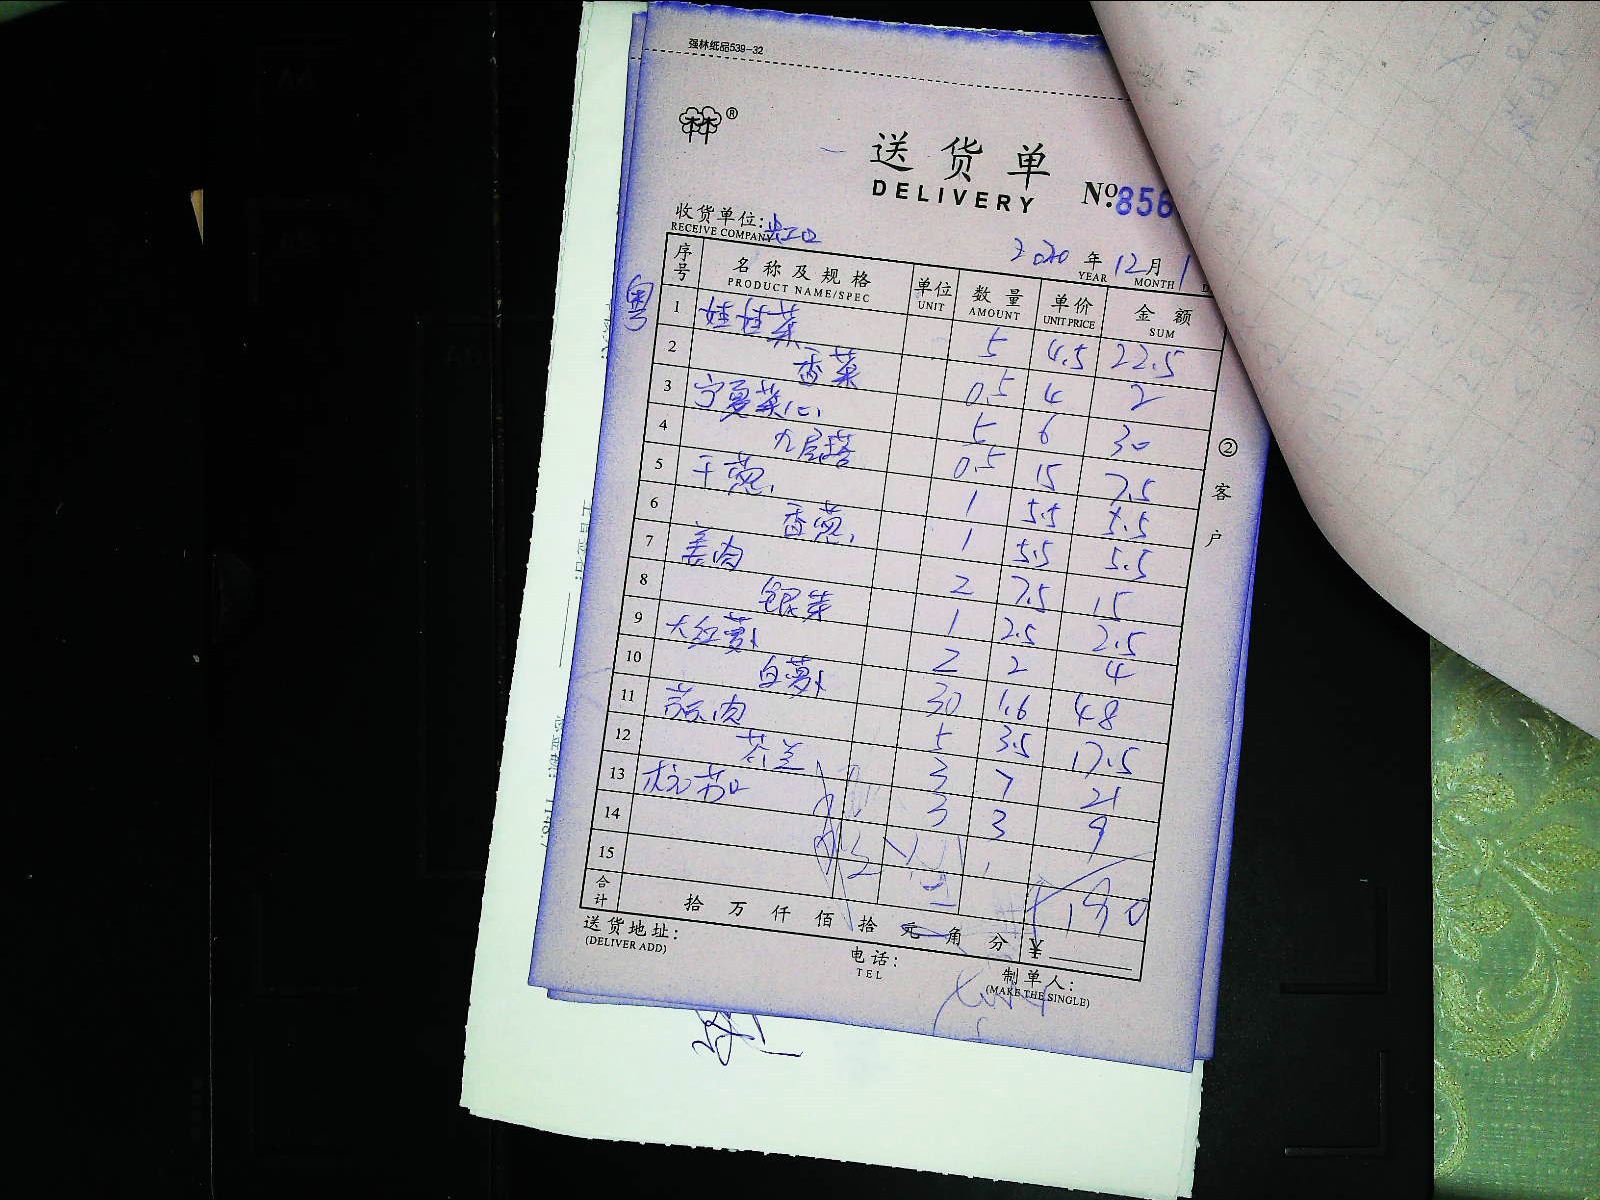 强林纸品539-32
林®
送货单
DELIVERY
№:856
收货单位:
RECEIVE COMPANY
2020 年 12 月 1
YEAR MONTH
序号 名称及规格 单位 数量 单价 金额
PRODUCT NAME/SPEC UNIT AMOUNT UNIT PRICE SUM
粤
1 娃娃菜 5 4.5 22.5
2 香菜 0.5 4 2
3 宁夏菜心 5 6 30
4 九层塔 0.5 15 7.5
5 干葱 1 5.5 5.5
6 香葱 1 5.5 5.5
7 姜肉 2 7.5 15
8 银芽 1 2.5 2.5
9 大红萝卜 2 2 4
10 白萝卜 30 1.6 48
11 肉 5 3.5 17.5
12 芥兰 3 7 21
13 3 3 9
14
15
190
合计 拾 万 仟 佰 拾 元 角 分 ¥
② 客户
送货地址:
(DELIVER ADD)
电话:
TEL
制单人:
(MAKE THE SINGLE)